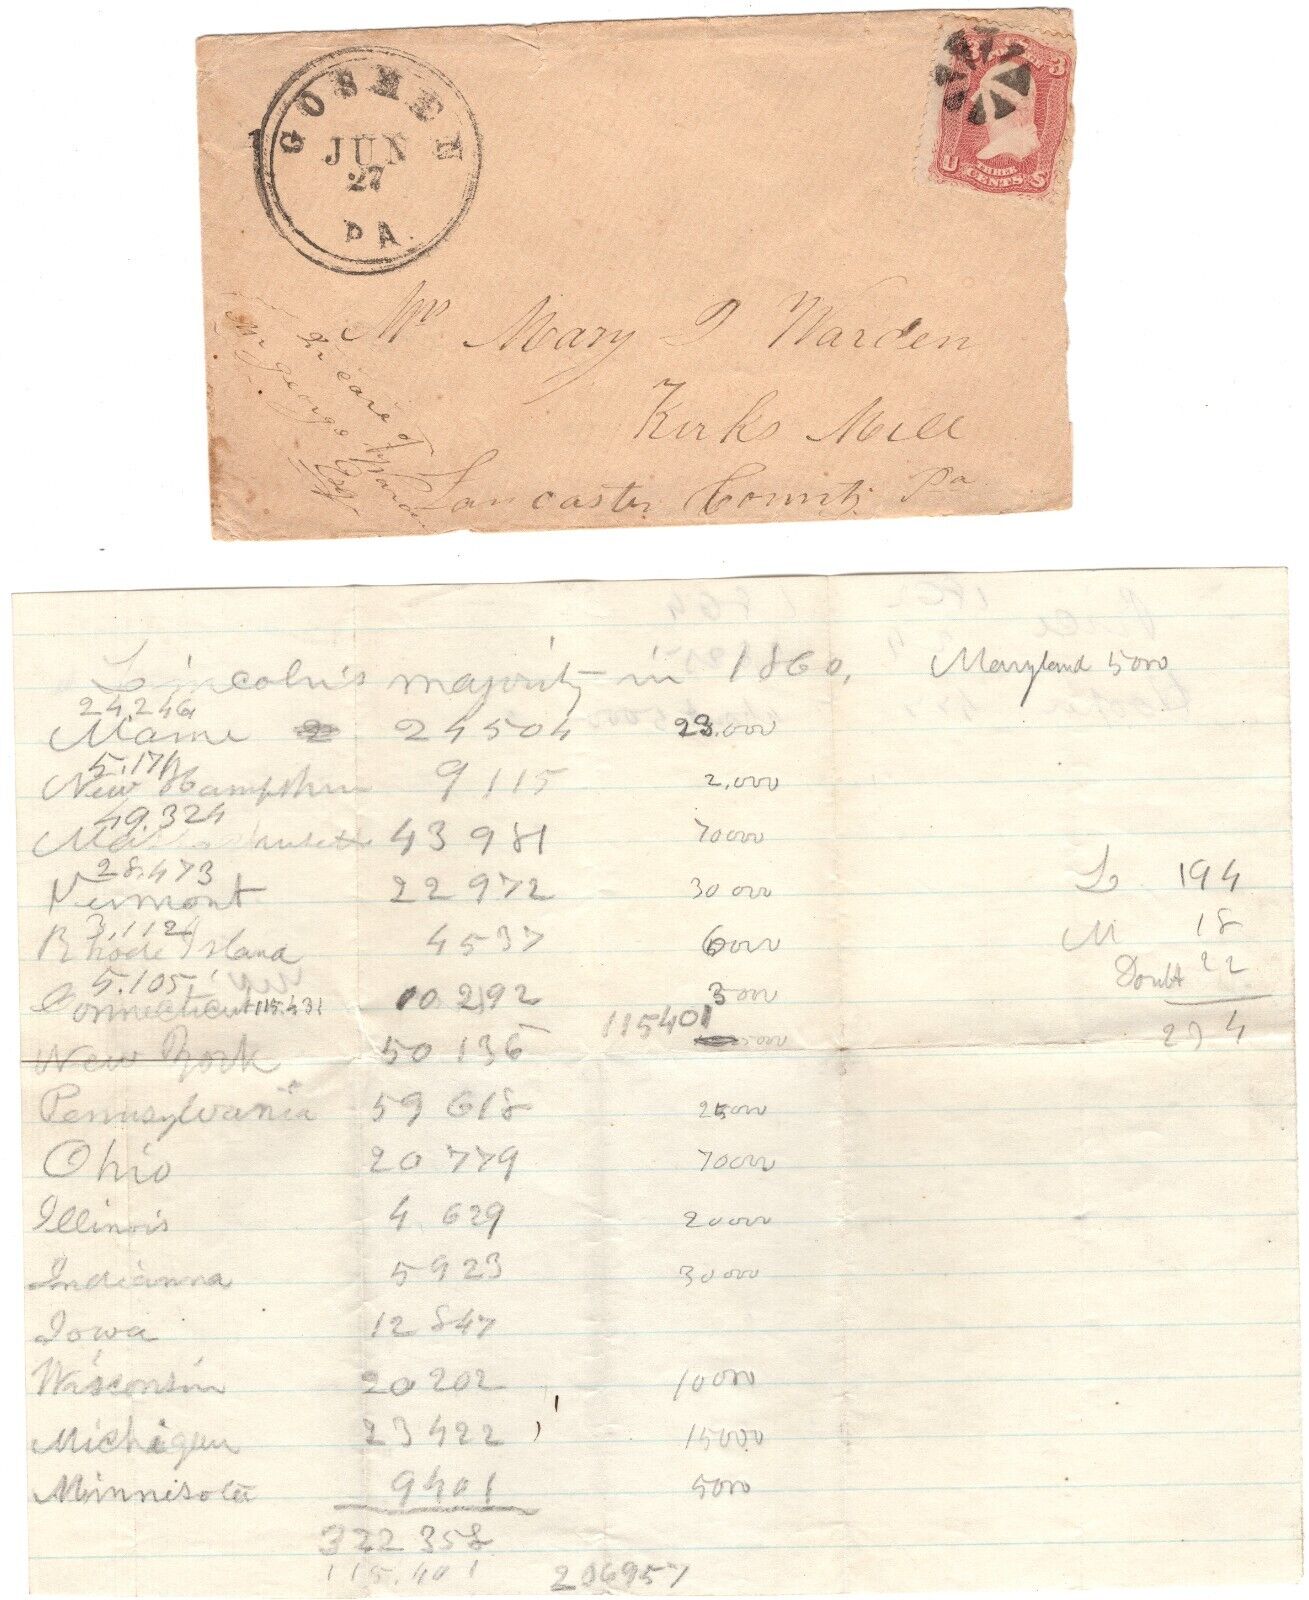 GOSHEN
JUN
27
PA.
3 3
U THREE CENTS S
Mrs Mary D Warden
Kirks Mill
Lancaster County Pa
In care of
Mr George Warden
Esq
Lincoln's majority in 1860, Maryland 5000
24,246
Maine 24504 23.000
5.171
New Hampshire 9115 2,000
49,324
Massachusetts 43981 70000
28,473
Vermont 22972 30000
3,112
Rhode Island 4537 6000
5.105
Connecticut 10.292 3000
115.431 115401
New York 50136
Pennsylvania 59618 25000
Ohio 20779 70000
Illinois 4.629 20000
Indianna 5923 30000
Iowa 12847
Wisconsin 20202 10000
Michigan 23422 15000
Minnisota 9401 5000
322358
115.401 206957
L 194
M 18
Doubt 22
234